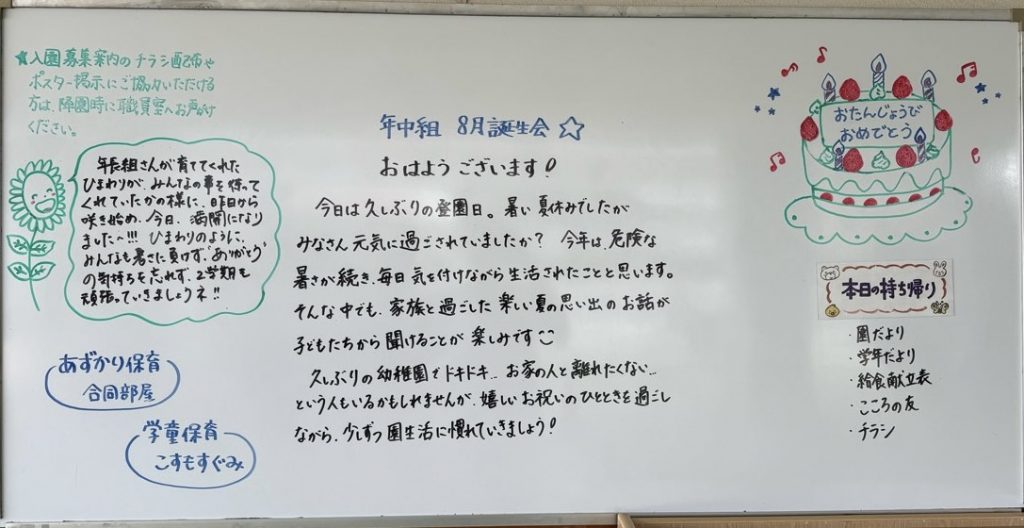 ★入園募集案内のチラシ配布や
ポスター掲示にご協力いただける
方は、降園時に職員室へお声がけ
ください。
年長組さんが育ててくれた
ひまわりが、みんなの事を待って
くれていたかの様に、昨日から
咲き始め、今日、満開になり
ました〜!!! ひまわりのように、
みんなも暑さに負けず、"ありがとう"
の気持ちを忘れず、2学期も
頑張っていきましょうネ!!
あずかり保育
合同部屋
学童保育
こすもすぐみ
年中組 8月誕生会☆
おはようございます!
今日は久しぶりの登園日。暑い夏休みでしたが
みなさん元気に過ごされていましたか? 今年は、危険な
暑さが続き、毎日気を付けながら生活されたことと思います。
そんな中でも、家族と過ごした楽しい夏の思い出のお話が
子どもたちから聞けることが楽しみです
久しぶりの幼稚園でドキドキ…お家の人と離れたくない…
という人もいるかもしれませんが、嬉しいお祝いのひとときを過ごし
ながら、少しずつ園生活に慣れていきましょう!
おたんじょうび
おめでとう
本日の持ち帰り
・園だより
・学年だより
・給食献立表
・こころの友
・チラシ